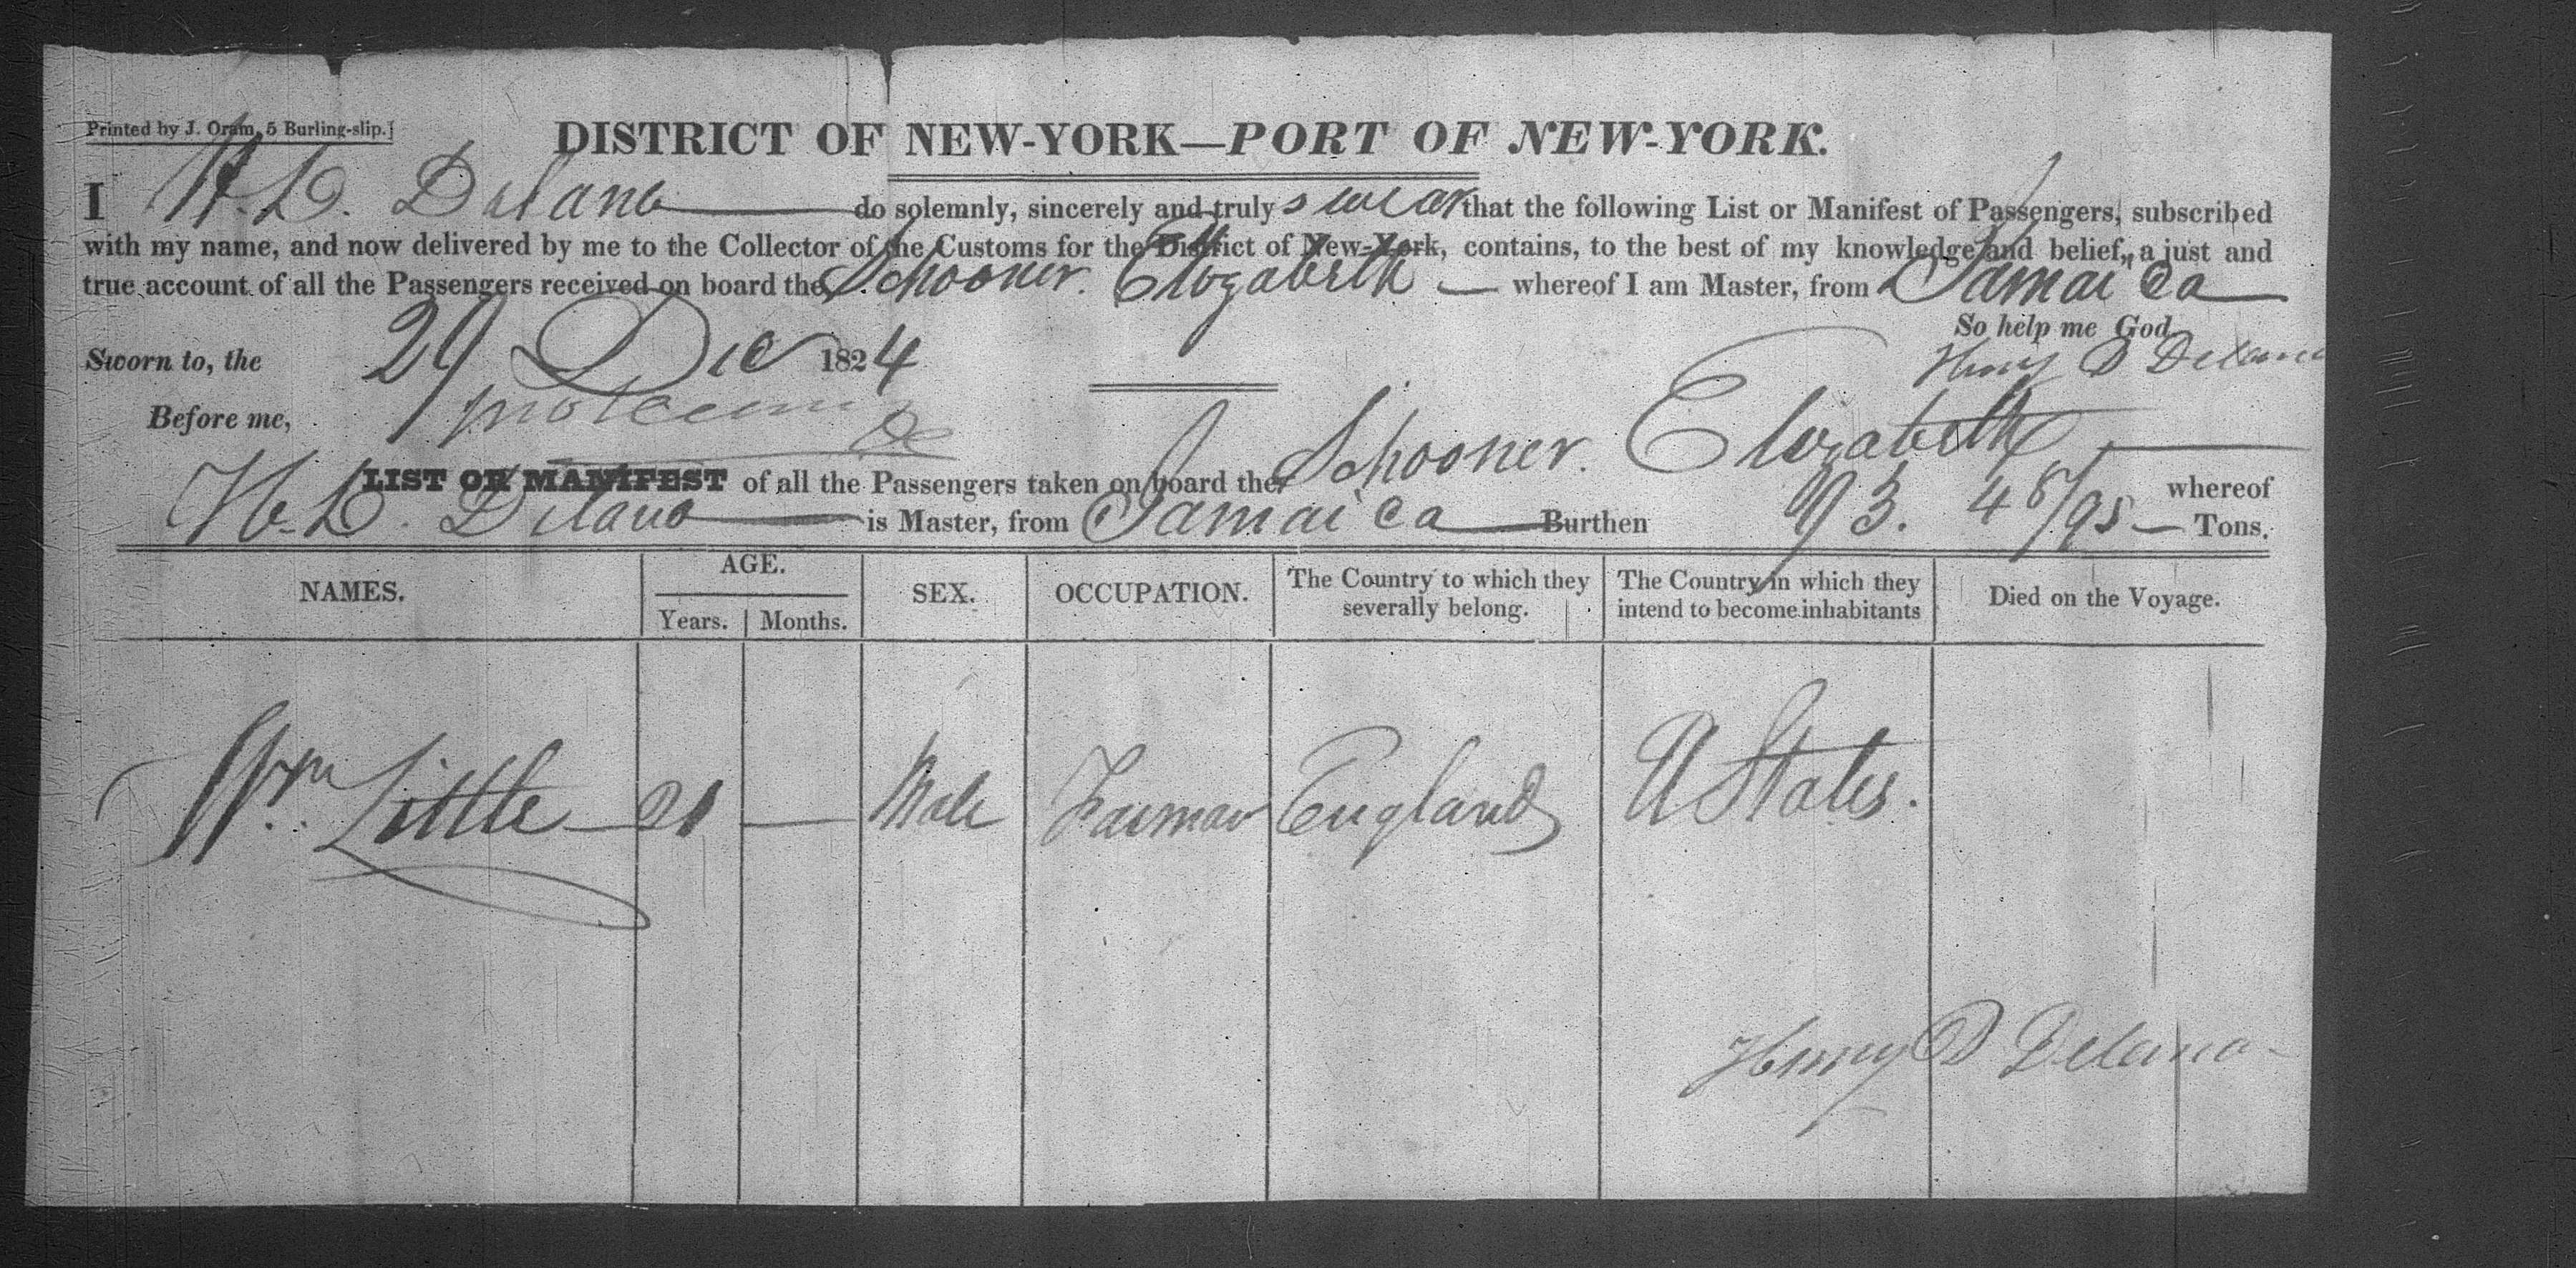 Printed by J. Oram, 5 Burling-slip.]
DISTRICT OF NEW-YORK—PORT OF NEW-YORK.
I H. D. Delano do solemnly, sincerely and truly swear that the following List or Manifest of Passengers, subscribed
with my name, and now delivered by me to the Collector of the Customs for the District of New-York, contains, to the best of my knowledge and belief, a just and
true account of all the Passengers received on board the Schooner. Elizabeth — whereof I am Master, from Jamaica
So help me God
Sworn to, the 29 Dec 1824
Henry D Delano
Before me,
LIST OR MANIFEST of all the Passengers taken on board the Schooner. Elizabeth — whereof
H. D. Delano is Master, from Jamaica Burthen 93. 48/95 — Tons.
NAMES. AGE. SEX. OCCUPATION. The Country to which they severally belong. The Country in which they intend to become inhabitants Died on the Voyage.
Years. Months.
Wm Little — 21 — Male Farmer England U States.
Henry D Delano